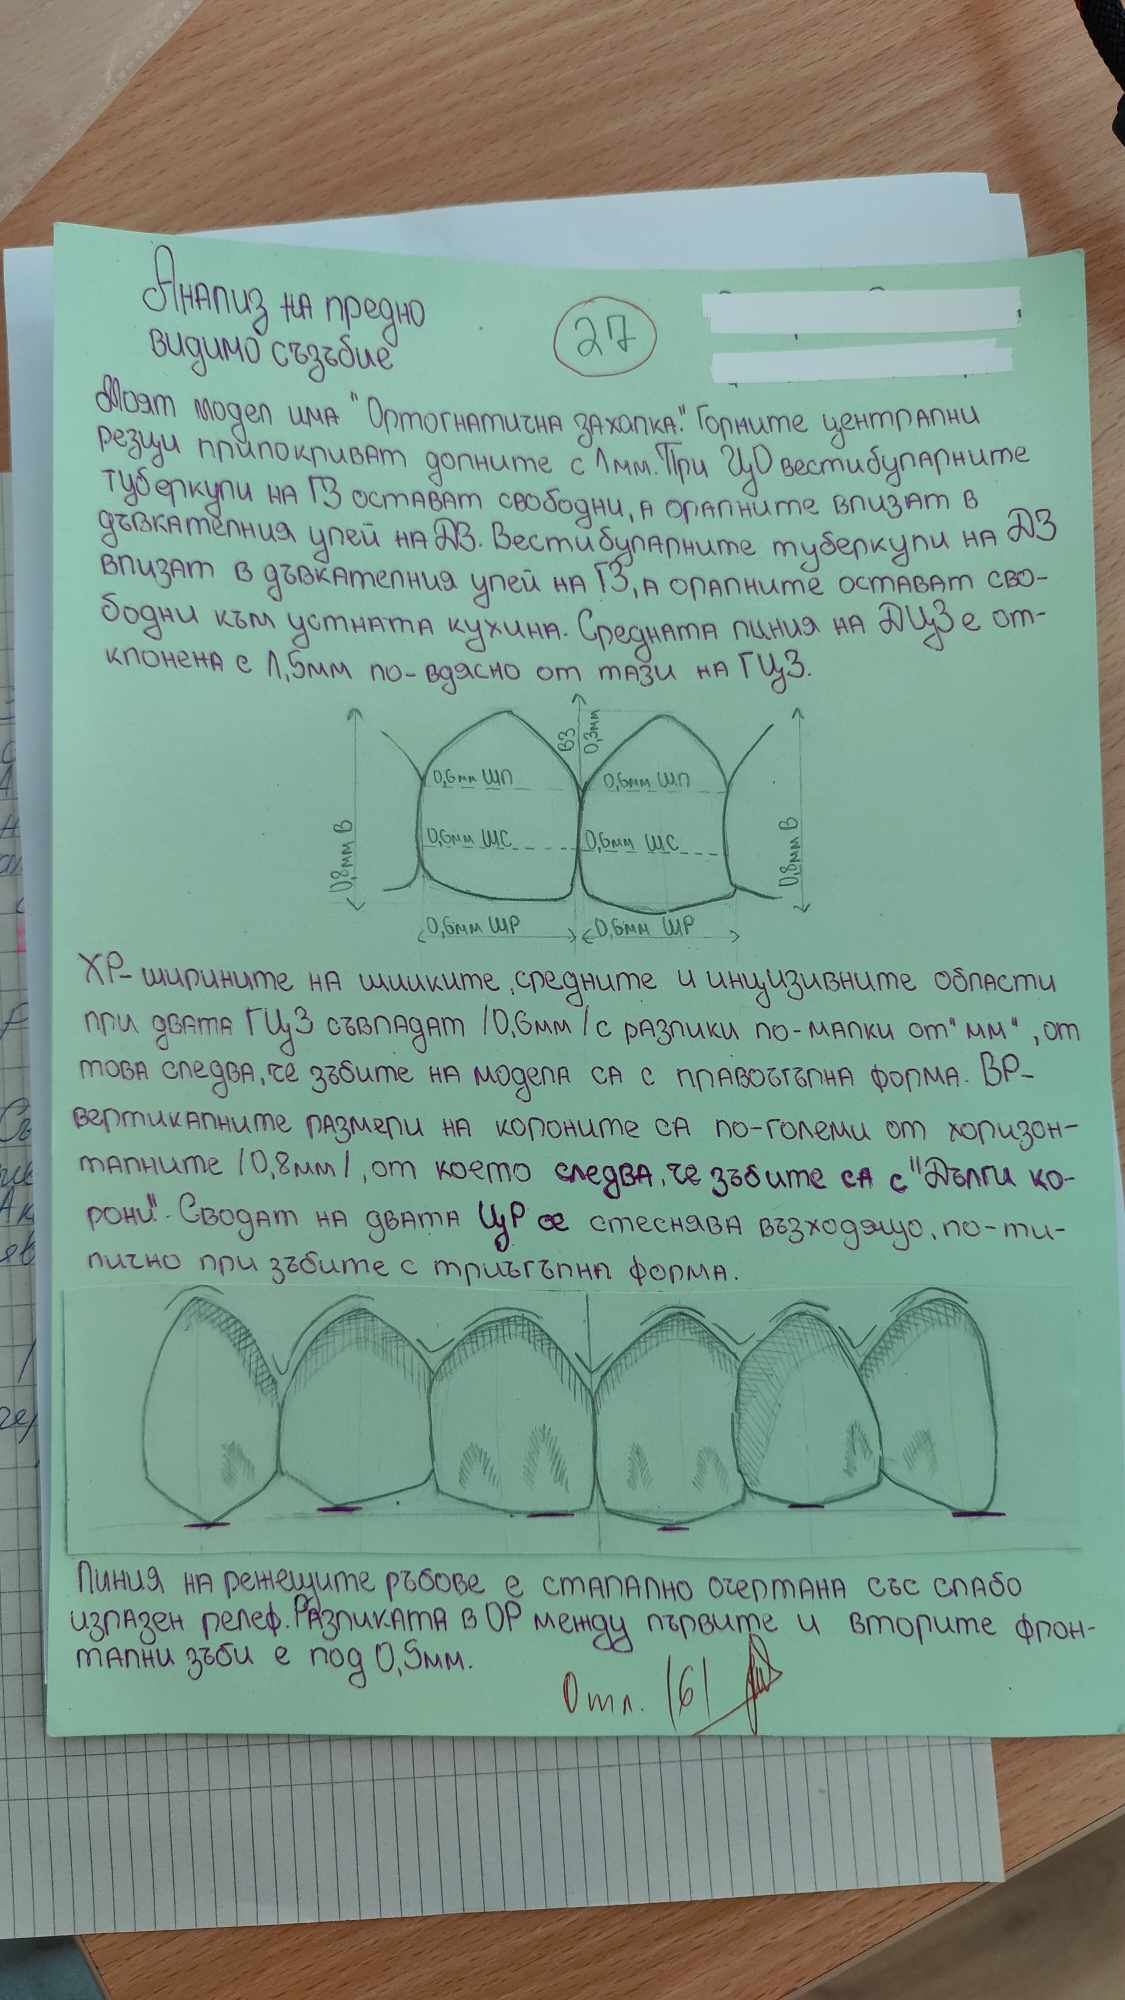 Анализ на предно
видимо съзъбие
27
Моят модел има "Ортогнатична захапка". Горните централни
резци припокриват долните с 1мм. При ЦО вестибуларните
туберкули на ГЗ остават свободни, а оралните влизат в
дъвкателния улей на ДЗ. Вестибуларните туберкули на ДЗ
влизат в дъвкателния улей на ГЗ, а оралните остават сво-
бодни към устната кухина. Средната линия на ДЦЗ е от-
клонена с 1,5мм по-вдясно от тази на ГЦЗ.
ВЗ
0,3мм
0,6мм ШП
0,6мм ШП
0,8мм В
0,6мм ШС
0,6мм ШС
0,8мм В
0,6мм ШР
0,6мм ШР
ХР-ширините на шийките, средните и инцизивните области
при двата ГЦЗ съвпадат /0,6мм/ с разлики по-малки от "мм", от
това следва, че зъбите на модела са с правоъгълна форма. ВР-
вертикалните размери на короните са по-големи от хоризон-
талните /0,8мм/, от което следва, че зъбите са с "Дълги ко-
рони". Сводат на двата ЦР се стеснява възходящо, по-ти-
пично при зъбите с триъгълна форма.
Линия на режещите ръбове е стапално очертана със слабо
изразен релеф. Разликата в ОР между първите и вторите фрон-
тални зъби е под 0,5мм.
Отл. /6/